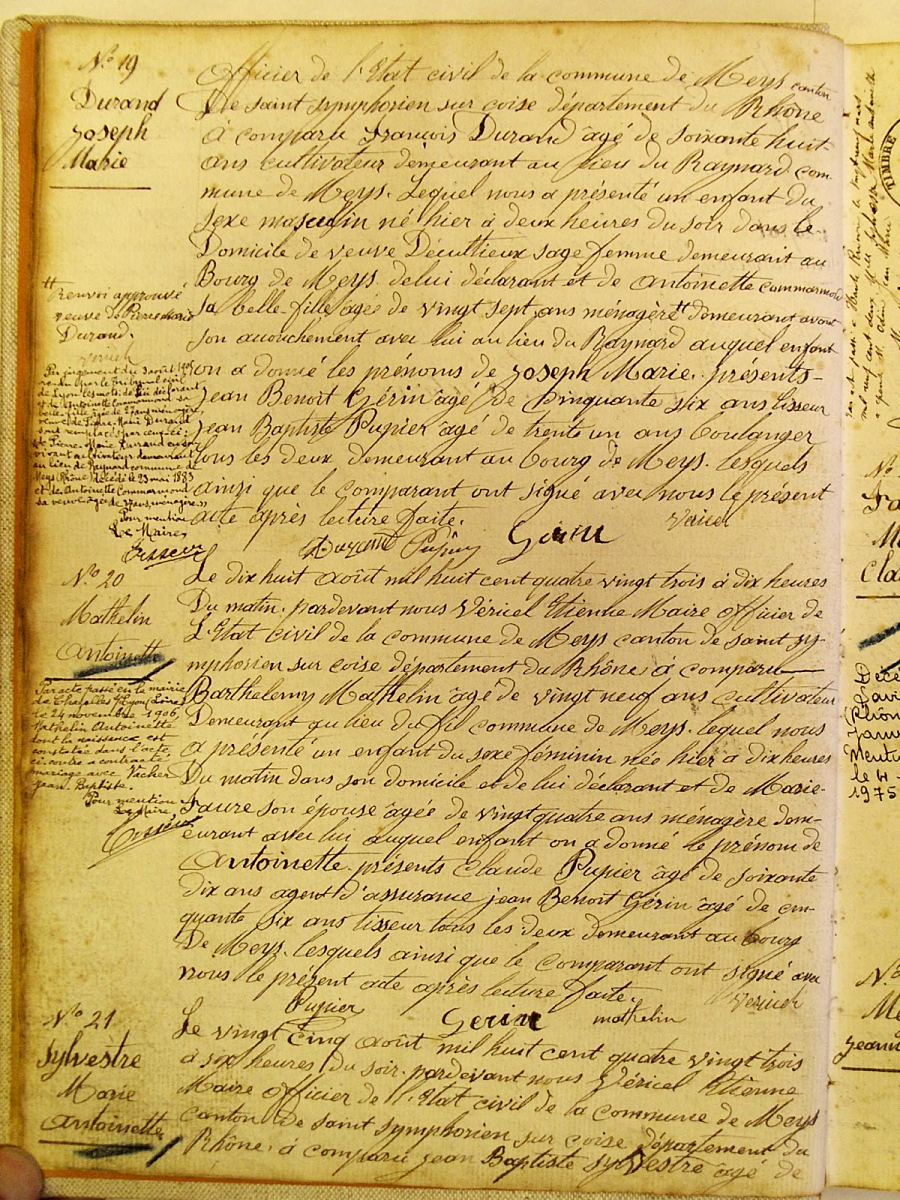 N° 19
Durand
Joseph
Marie
Officier de l'Etat civil de la commune de Meys canton
De saint symphorien sur coise département du Rhône
à comparu françois Durand âgé de soixante huit
ans cultivateur demeurant au lieu du Raynard com-
mune de Meys. Lequel nous a présenté un enfant du
sexe masculin né hier à deux heures du soir dans le
Domicile de veuve Décultieux sage femme demeurant au
Bourg de Meys. de lui déclarant et de Antoinette commarmond
sa belle fille âgée de vingt sept ans ménagère demeurant avant
son accouchement avec lui au lieu du Raynard auquel enfant
on a donné les prénoms de Joseph Marie. présents-
jean Benoit Gérin âgé de cinquante six ans tisseur
jean Baptiste Pupier âgé de trente un ans boulanger
tous les deux demeurant au bourg de Meys. lesquels
ainsi que le comparant ont signé avec nous le présent
acte après lecture faite.
Durand Pupier Gerin Vericel
Renvoi approuvé
veuve de Pierre marie
Durand.
Vericel
Par jugement du 3 août
rendu par le tribunal civil
de Lyon les mots de lui déclarant
et de Antoinette Commarmond sa
belle fille âgée de 27 ans ménagère
veuve de Pierre Marie Durand
sont remplacés par ceux ci:
de Pierre Marie Durand en son
vivant cultivateur demeurant
au lieu de Raynard commune de
Meys (Rhône) décédé le 23 mai 1883
et de Antoinette Commarmond
sa veuve âgée de 27 ans, ménagère
Pour mention
Le Maire
N° 20
Mathelin
Antoinette
Le dix huit août mil huit cent quatre vingt trois à dix heures
Du matin. pardevant nous Véricel Etienne Maire officier de
L'Etat civil de la commune de Meys canton de saint sy-
mphorien sur coise département du Rhône à comparu
Barthelemy Mathelin âgé de vingt neuf ans cultivateur
Demeurant au lieu du fil commune de Meys. lequel nous
a présenté un enfant du sexe féminin née hier à dix heures
Du matin dans son domicile et de lui déclarant et de Marie-
faure son épouse âgée de vingt quatre ans ménagère dem-
eurant avec lui auquel enfant on a donné le prénom de
Antoinette. présents Claude Pupier âgé de soixante
dix ans agent d'assurance jean Benoit Gérin âgé de cin-
quante six ans tisseur tous les deux demeurant au bourg
De Meys. lesquels ainsi que le comparant ont signé avec
nous le présent acte après lecture faite.
Pupier Gerin mathelin Vericel
Par acte passé en la mairie
le 24 novembre 1906,
Mathelin Antoinette
dont la naissance est
constatée dans l'acte
ci-contre a contracté
mariage avec Vacher
Jean Baptiste.
Pour mention
Le Maire
N° 21
Sylvestre
Marie
Antoinette
Le vingt cinq août mil huit cent quatre vingt trois
à six heures du soir. pardevant nous Véricel Etienne
Maire officier de l'Etat civil de la commune de Meys
canton de saint symphorien sur coise département du
Rhône. à comparu jean Baptiste sylvestre âgé de
TIMBRE
Rhône
le 4
1975